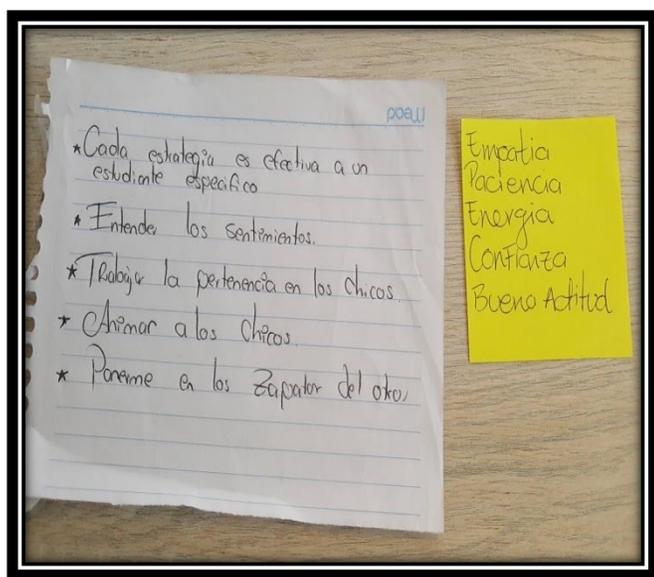 Mead
*Cada estrategia es efectiva a un
estudiante especifico
* Entender los sentimientos.
* Trabajar la pertenencia en los chicos.
* Animar a los chicos.
* Ponerme en los Zapator del otro.
Empatia
Paciencia
Energia
Confianza
Buena Actitud